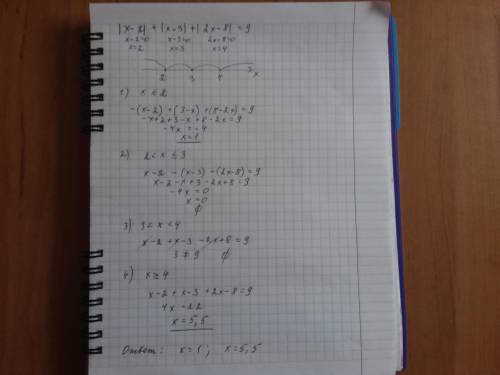 |x-2| + |x-3| + |2x-8| = 9
x-2=0 x-3=0 2x-8=0
x=2 x=3 x=4
2 3 4 x
1) x ≤ 2
-(x-2) + (3-x) + (8-2x) = 9
-x+2+3-x+8-2x=9
-4x = -4
x=1
2) 2 < x ≤ 3
x-2 - (x-3) - (2x-8) = 9
x-2-x+3-2x+8=9
-4x = 0
x=0
∅
3) 3 < x < 4
x-2+x-3-2x+8=9
3 ≠ 9 ∅
4) x ≥ 4
x-2+x-3+2x-8=9
4x = 22
x=5,5
Ответ: x=1; x=5,5